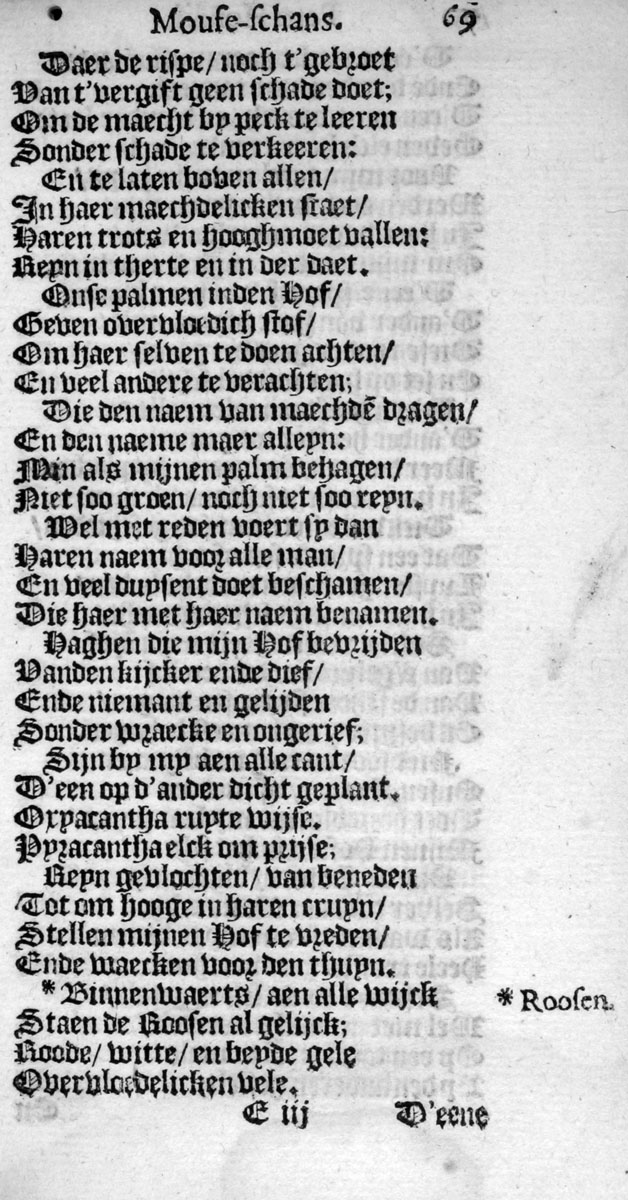 Mouse-schans. 69
Daer de rispe/ noch t'gebroet
Van t'vergift geen schade doet;
Om de maecht by peck te leeren
Sonder schade te verkeeren:
En te laten boven allen/
In haer maechdelicken staet/
Haren trots en hooghmoet vallen:
Reyn in therte en in der daet.
Onse palmen inden Hof/
Geven overvloedich stof/
Om haer selven te doen achten/
En veel andere te verachten;
Die den naem van maechdē dragen/
En den naeme maer alleyn:
Min als mijnen palm behagen/
Niet soo groen/ noch niet soo reyn.
Wel met reden voert sy dan
Haren naem voor alle man/
En veel duysent doet beschamen/
Die haer met haer naem benamen.
Haghen die mijn Hof bevrijden
Vanden kijcker ende dief/
Ende niemant en gelijden
Sonder wraecke en ongerief;
Sijn by my aen alle cant/
D'een op d'ander dicht geplant.
Oxyacantha ruyte wijse.
Pyracantha elck om prijse;
Reyn gevlochten/ van beneden
Tot om hooge in haren cruyn/
Stellen mijnen Hof te vreden/
Ende waecken voor den thuyn.
* Binnenwaerts/ aen alle wijck * Roosen.
Staen de Roosen al gelijck;
Roode/ witte/ en beyde gele
Overvloedelicken vele.
E iij D'eene